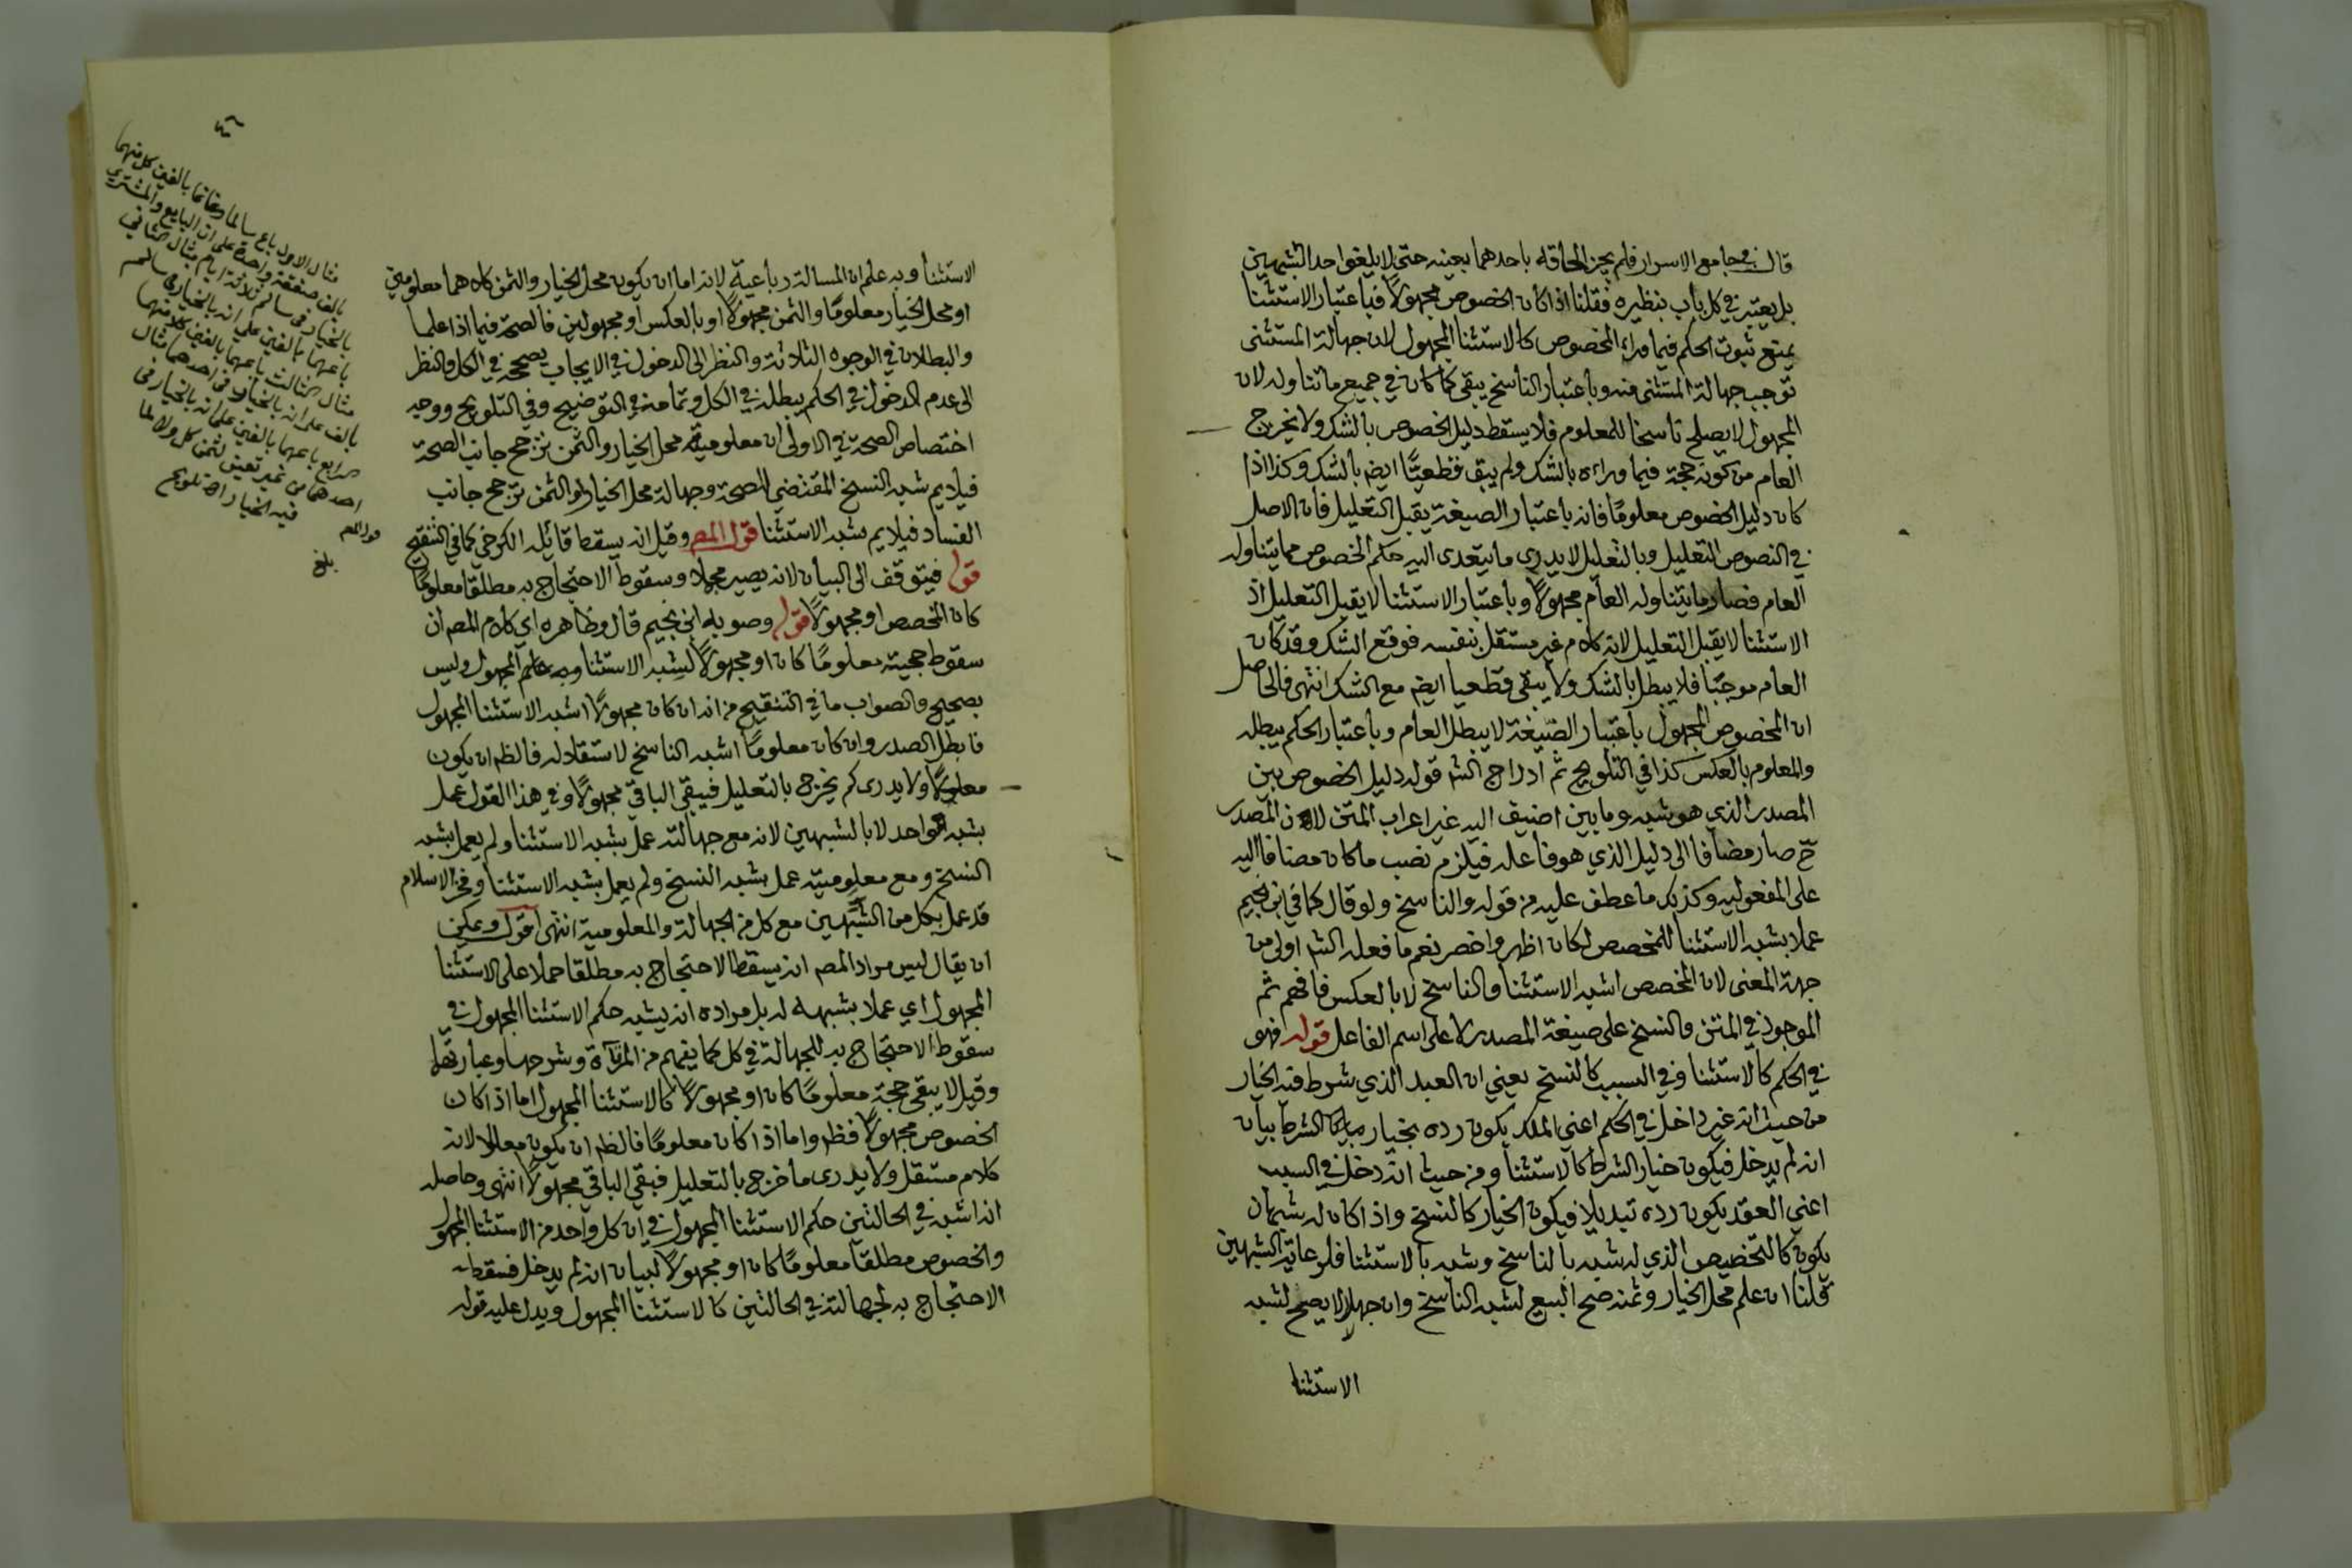 قال في جامع الاسرار فلم يجز الحاقه باحدهما بعينه حتى لا يلغوا احد الشبهين
بل يعتبر في كل باب بنظيره فقلنا اذا كان الخصوص مجهولاً فباعتبار الاستثنا
يمنع ثبوت الحكم فيما وراء المخصوص كالاستثنا المجهول لان جهالة المستثنى
توجب جهالة المستثنى منه وباعتبار الناسخ يبقى كما كان في جميع ما تناوله لان
المجهول لا يصلح ناسخا للمعلوم فلا يسقط دليل الخصوص بالشك ولا يخرج
العام من كونه حجة فيما وراءه بالشك ولم يبق قطعيًّا ايض بالشك وكذا اذا
كان دليل الخصوص معلومًا فانه باعتبار الصيغة يقبل التعليل فان الاصل
في النصوص التعليل وبالتعليل لا يدرى ما يتعدى اليه حكم الخصوص مما يتناوله
العام فصار ما يتناوله العام مجهولاً وباعتبار الاستثنا لا يقبل التعليل اذ
الاستثنا لا يقبل التعليل لانه كلام غير مستقل بنفسه فوقع الشك وقد كان
العام موجبًا فلا يبطل بالشك ولا يبقى قطعيا ايض مع الشك انتهى فالحاصل
ان المخصوص المجهول باعتبار الصيغة لا يبطل العام وباعتبار الحكم يبطله
والمعلوم بالعكس كذا في التلويح ثم ادراج الش قوله دليل الخصوص بين
المصدر الذي هو شبه وما بين اضيف اليه غير اعراب المتن لان المصدر
ح صار مضافا الى دليل الذي هو فاعله فيلزم نصب ما كان مضافا اليه
على المفعوليه وكذلك ما عطف عليه من قوله والناسخ ولو قال كما في ابن نجيم
عملا بشبه الاستثنا للمخصص لكان اظهر واخصر نعم ما فعله الش اولى من
جهة المعنى لان المخصص اشبه الاستثنا والناسخ لا بالعكس فافهم ثم
الموجود في المتن والنسخ على صيغة المصدر لا على اسم الفاعل قوله فهو
في الحكم كالاستثنا وفي السبب كالنسخ يعني ان العبد الذي شرط فيه الخيار
من حيث انه غير داخل في الحكم اعني الملك يكون رده بخيار الشرط بيان
انه لم يدخل فيكون خيار الشرط كالاستثنا ومن حيث انه دخل في السبب
اعني العقد يكون رده تبديلا فيكون الخيار كالنسخ واذا كان له شبهان
يكون كالتخصيص الذي له شبه بالناسخ وشبه بالاستثنا فلرعاية الشبهين
قلنا ان علم محل الخيار وثمنه صح البيع لشبه الناسخ وان جهلا لا يصح لشبه
الاستثنا
٤٦
الاستثنا وبه علم ان المسالة رباعية لانه اما ان يكون محل الخيار والثمن كلاهما معلومين
او محل الخيار معلومًا والثمن مجهولاً او بالعكس او مجهولين فالصحة فيما اذا علما
والبطلان في الوجوه الثلاثة والنظر الى الدخول في الايجاب يصحح في الكل والنظر
الى عدم الدخول في الحكم يبطل في الكل وتمامه في التوضيح وفي التلويح ووجه
اختصاص الصحة في الاولى ان معلومية محل الخيار والثمن ترجح جانب الصحة
فيلايم شبه النسخ المقتضي للصحة وجهالة محل الخيار او الثمن ترجح جانب
الفساد فيلايم شبه الاستثنا قول المص وقيل انه يسقط قائله الكرخي كما في التنقيح
قوله فيتوقف الى البيان لانه يصير مجملا وسقوط الاحتجاج به مطلقا معلومًا
كان المخصص او مجهولاً قوله وصوبه ابن نجيم قال وظاهره اي كلام المص ان
سقوط حجيته معلومًا كان او مجهولاً لشبه الاستثنا وبه علم المجهول وليس
بصحيح والصواب ما في التنقيح من انه ان كان مجهولاً اشبه الاستثنا المجهول
فابطل الصدر وان كان معلومًا اشبه الناسخ لاستقلاله فالظ ان يكون
معلولاً ولا يدرى كم يخرج بالتعليل فيبقى الباقي مجهولاً وفي هذا القول عمل
بشبه واحد لا بالشبهين لانه مع جهالته عمل بشبه الاستثنا ولم يعمل بشبه
النسخ ومع معلوميته عمل بشبه النسخ ولم يعمل بشبه الاستثنا وفخر الاسلام
قد عمل بكل من الشبهين مع كل من الجهالة والمعلومية انتهى اقول ويمكن
ان يقال ليس مراد المص انه يسقط الاحتجاج به مطلقا حملا على الاستثنا
المجهول اي عملا بشبهه له بل مراده انه يشبه حكم الاستثنا المجهول في
سقوط الاحتجاج به للجهالة في كل كما يفهم من المرآة وشرحها وعبارتها
وقيل لا يبقى حجة معلومًا كان او مجهولاً كالاستثنا المجهول اما اذا كان
الخصوص مجهولاً فظ واما اذا كان معلومًا فالظ ان يكون معللا لانه
كلام مستقل ولا يدرى ما خرج بالتعليل فبقي الباقي مجهولاً انتهى وحاصله
انه اشبه في الحالتين حكم الاستثنا المجهول في ان كل واحد من الاستثنا المجهول
والخصوص مطلقا معلومًا كان او مجهولاً لبيان انه لم يدخل فسقط
الاحتجاج به لجهالته في الحالتين كالاستثنا المجهول ويدل عليه قوله
مثال الاول باع سالما وغانما بالفين كل منهما
بالف صفقة واحدة على ان البايع والمشتري
بالخيار في سالم ثلاثة ايام مثال الثاني
باعهما بالفين على انه بالخيار في سالم
مثال الثالث باعهما بالفين كل منهما
بالف على انه بالخيار في احدهما مثال
الرابع باعهما بالفين على انه بالخيار في
احدهما من غير تعيين لثمن كل ولا لما
فيه الخيار اه تلويح
بلغ